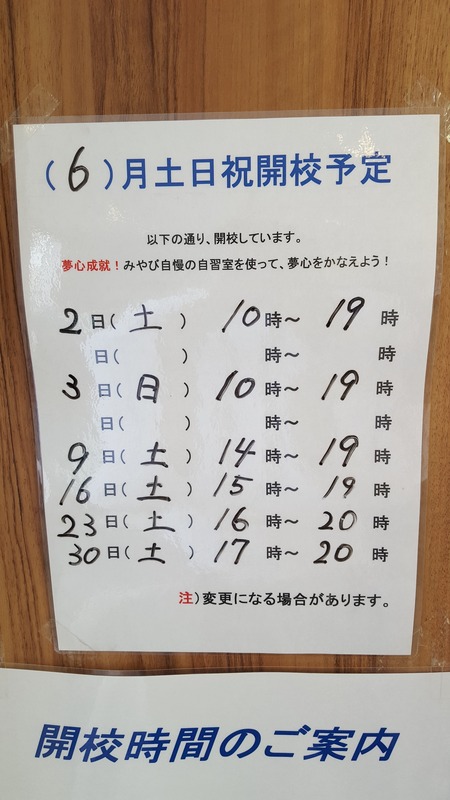 (6)月土日祝開校予定
以下の通り、開校しています。
夢心成就！みやび自慢の自習室を使って、夢心をかなえよう！
2日(土) 10時～19時
日( ) 時～ 時
3日(日) 10時～19時
日( ) 時～ 時
9日(土) 14時～19時
16日(土) 15時～19時
23日(土) 16時～20時
30日(土) 17時～20時
注)変更になる場合があります。
開校時間のご案内